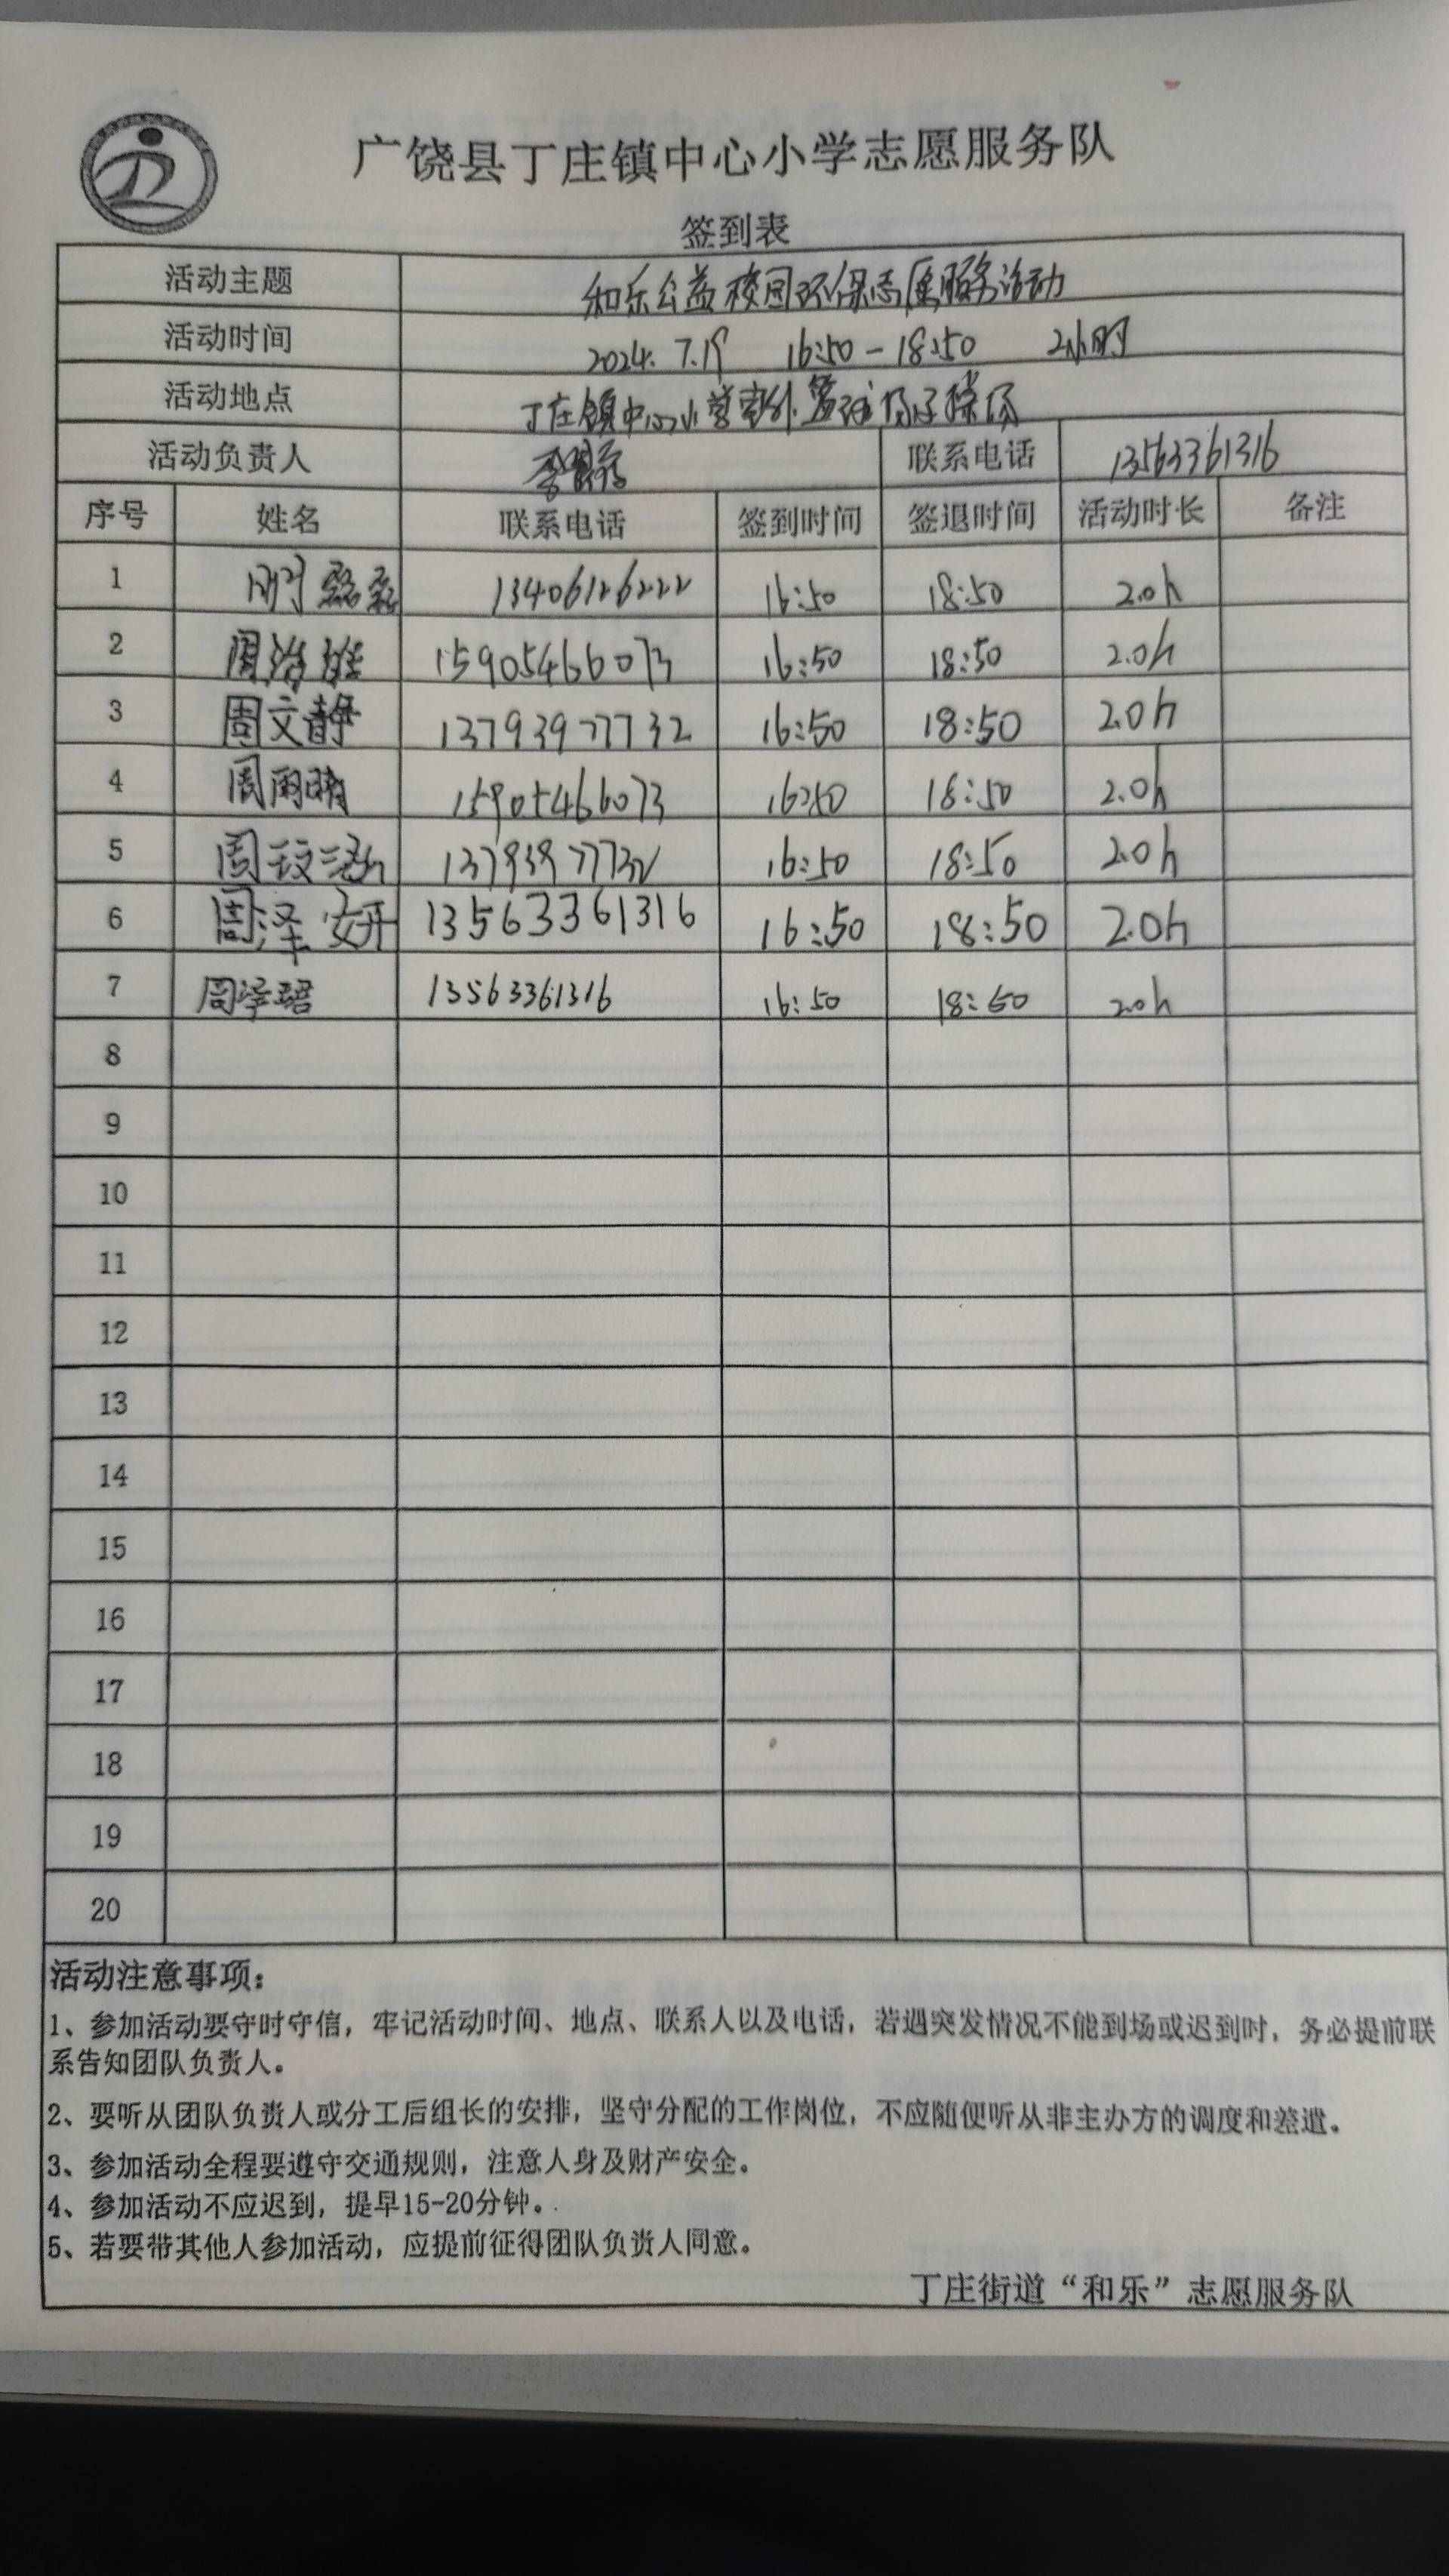 广饶县丁庄镇中心小学志愿服务队
签到表
活动主题 和乐公益校园环保志愿服务活动
活动时间 2024.7.19 16:50-18:50 2小时
活动地点 丁庄镇中心小学室外篮球场及操场
活动负责人 联系电话 13563361316
序号 姓名 联系电话 签到时间 签退时间 活动时长 备注
1 13406126222 16:50 18:50 2.0h
2 15905466073 16:50 18:50 2.0h
3 周文静 13793977732 16:50 18:50 2.0h
4 周雨晴 15905466073 16:50 18:50 2.0h
5 周玟涵 13793977732 16:50 18:50 2.0h
6 周泽妍 13563361316 16:50 18:50 2.0h
7 周泽珺 13563361316 16:50 18:50 2.0h
8
9
10
11
12
13
14
15
16
17
18
19
20
活动注意事项：
1、参加活动要守时守信，牢记活动时间、地点、联系人以及电话，若遇突发情况不能到场或迟到时，务必提前联
系告知团队负责人。
2、要听从团队负责人或分工后组长的安排，坚守分配的工作岗位，不应随便听从非主办方的调度和差遣。
3、参加活动全程要遵守交通规则，注意人身及财产安全。
4、参加活动不应迟到，提早15-20分钟。
5、若要带其他人参加活动，应提前征得团队负责人同意。
丁庄街道“和乐”志愿服务队